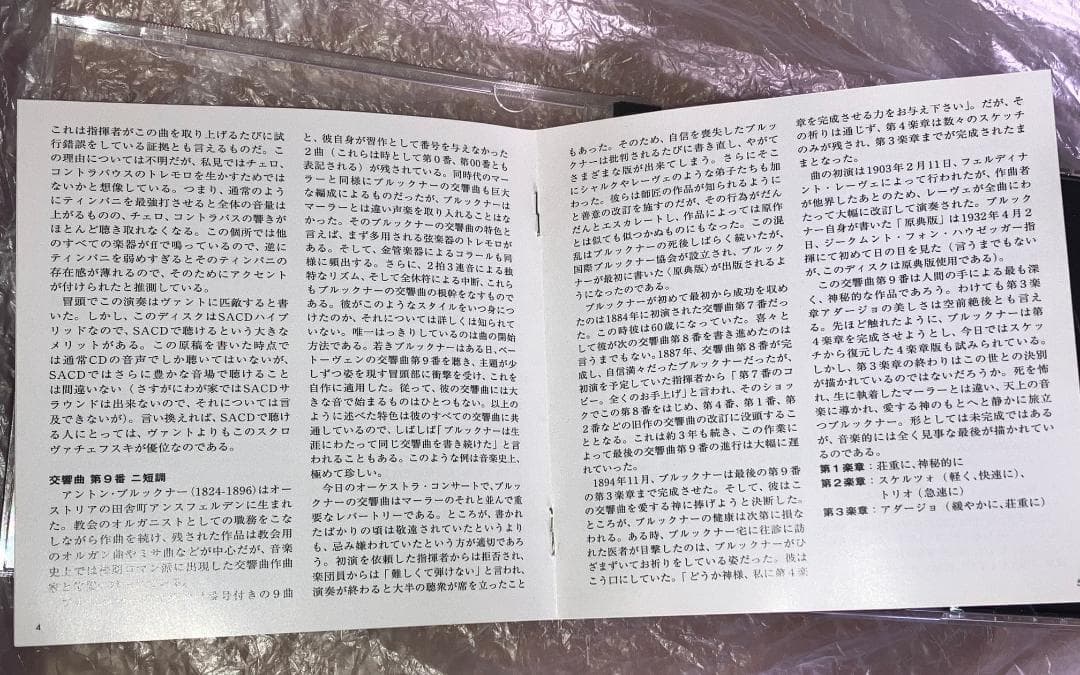 これは指揮者がこの曲を取り上げるたびに試
行錯誤をしている証拠とも言えるものだ。こ
の理由については不明だが、私見ではチェロ、
コントラバウスのトレモロを生かすためでは
ないかと想像している。つまり、通常のよう
にティンパニを最強打させると全体の音量は
上がるものの、チェロ、コントラバスの響きが
ほとんど聴き取れなくなる。この個所では他
のすべての楽器がffで鳴っているので、逆に
ティンパニを弱めすぎるとそのティンパニの
存在感が薄れるので、そのためにアクセント
が付けられたと推測している。
冒頭でこの演奏はヴァントに匹敵すると書
いた。しかし、このディスクはSACDハイブ
リッドなので、SACDで聴けるという大きな
メリットがある。この原稿を書いた時点で
は通常CDの音声でしか聴いてはいないが、
SACDではさらに豊かな音場で聴けること
は間違いない（さすがにわが家ではSACDサ
ラウンドは出来ないので、それについては言
及できないが）。言い換えれば、SACDで聴け
る人にとっては、ヴァントよりもこのスクロ
ヴァチェフスキが優位なのである。
交響曲 第9番 ニ短調
アントン・ブルックナー(1824-1896)はオー
ストリアの田舎町アンスフェルデンに生まれ
た。教会のオルガニストとしての職務をこな
しながら作曲を続け、残された作品は教会用
のオルガン曲やミサ曲などが中心だが、音楽
史上では後期ロマン派に出現した交響曲作曲
番号付きの9曲
4
と、彼自身が習作として番号を与えなかった
2曲（これらは時として第0番、第00番とも
表記される）が残されている。同時代のマー
ラーと同様にブルックナーの交響曲も巨大
な編成によるものだったが、ブルックナーは
マーラーとは違い声楽を取り入れることはな
かった。そのブルックナーの交響曲の特色と
言えば、まず多用される弦楽器のトレモロが
ある。そして、金管楽器によるコラールも同
様に頻出する。さらに、2拍3連音による独
特なリズム、そして全休符による中断、これら
もブルックナーの交響曲の根幹をなすもので
ある。彼がこのようなスタイルをいつ身につ
けたのか、それについては詳しくは知られて
いない。唯一はっきりしているのは曲の開始
方法である。若きブルックナーはある日、ベー
トーヴェンの交響曲第9番を聴き、主題が少
しずつ姿を現す冒頭部に衝撃を受け、これを
自作に適用した。従って、彼の交響曲には大
きな音で始まるものはひとつもない。以上の
ように述べた特色は彼のすべての交響曲に共
通しているので、しばしば「ブルックナーは生
涯にわたって同じ交響曲を書き続けた」と言
われることもある。このような例は音楽史上、
極めて珍しい。
今日のオーケストラ・コンサートで、ブルッ
クナーの交響曲はマーラーのそれと並んで重
要なレパートリーである。ところが、書かれ
たばかりの頃は敬遠されていたというより
も、忌み嫌われていたという方が適切であろ
う。初演を依頼した指揮者からは拒否され、
楽団員からは「難しくて弾けない」と言われ、
演奏が終わると大半の聴衆が席を立ったこと
もあった。そのため、自信を喪失したブルッ
クナーは批判されるたびに書き直し、やがて
さまざまな版が出来てしまう。さらにそこ
にシャルクやレーヴェのような弟子たちも加
わった。彼らは師匠の作品が知られるように
と善意の改訂を施すのだが、その行為がだん
だんとエスカレートし、作品によっては原作
とは似ても似つかぬものにもなった。この混
乱はブルックナーの死後しばらく続いたが、
国際ブルックナー協会が設立され、ブルック
ナーが最初に書いた〈原典版〉が出版されるよ
うになったのである。
ブルックナーが初めて最初から成功を収め
たのは1884年に初演された交響曲第7番だっ
た。この時彼は60歳になっていた。喜々と
して彼が次の交響曲第8番を書き進めたのは
言うまでもない。1887年、交響曲第8番が完
成し、自信満々だったブルックナーだったが、
初演を予定していた指揮者から「第7番のコ
ピー。全くのお手上げ」と言われ、そのショッ
クでこの第8番をはじめ、第4番、第1番、第
2番などの旧作の交響曲の改訂に没頭するこ
ととなる。これは約3年も続き、この作業に
よって最後の交響曲第9番の進行は大幅に遅
れていった。
1894年11月、ブルックナーは最後の第9番
の第3楽章まで完成させた。そして、彼はこ
の交響曲を愛する神に捧げようと決断した。
ところが、ブルックナーの健康は次第に損な
われる。ある時、ブルックナー宅に往診に訪
れた医者が目撃したのは、ブルックナーがひ
ざまずいてお祈りをしている姿だった。彼は
こう口にしていた。「どうか神様、私に第4楽
章を完成させる力をお与え下さい」。だが、そ
の祈りは通じず、第4楽章は数々のスケッチ
のみが残され、第3楽章までが完成されたま
まとなった。
曲の初演は1903年2月11日、フェルディナ
ント・レーヴェによって行われたが、作曲者
が他界したあとのため、レーヴェが全曲にわ
たって大幅に改訂して演奏された。ブルック
ナー自身が書いた「原典版」は1932年4月2
日、ジークムント・フォン・ハウゼッガー指
揮にて初めて日の目を見た（言うまでもない
が、このディスクは原典版使用である）。
この交響曲第9番は人間の手による最も深
く、神秘的な作品であろう。わけても第3楽
章アダージョの美しさは空前絶後とも言え
る。先ほど触れたように、ブルックナーは第
4楽章を完成させようとし、今日ではスケッ
チから復元した4楽章版も試みられている。
しかし、第3楽章の終わりはこの世との決別
が描かれているのではないだろうか。死を怖
れ、生に執着したマーラーとは違い、天上の音
楽に導かれ、愛する神のもとへと静かに旅立
つブルックナー。形としては未完成ではある
が、音楽的には全く見事な最後が描かれてい
るのである。
第1楽章：荘重に、神秘的に
第2楽章：スケルツォ（軽く、快速に）、
トリオ（急速に）
第3楽章：アダージョ（緩やかに、荘重に）